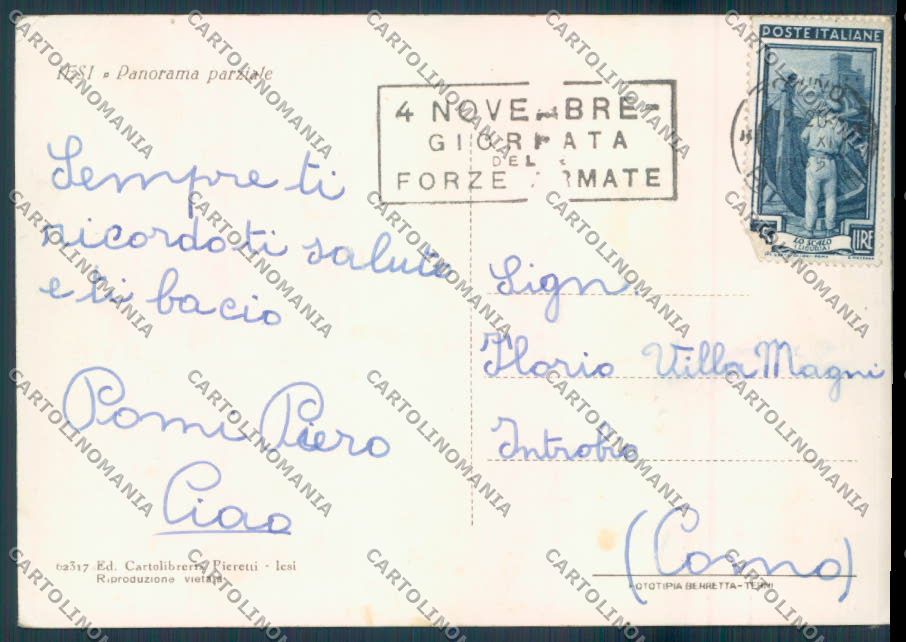 IESI - Panorama parziale
4 NOVEMBRE -
GIORNATA
DELLE
FORZE ARMATE
POSTE ITALIANE
LO SCALO
(LIGURIA)
LIRE
Sempre ti
ricordo ti saluto
e ti bacio
Pomi Piero
Ciao
Sign.
Ilario Villa Magni
Introbio
(Como)
62317 Ed. Cartolibreria Pieretti - Iesi
Riproduzione vietata
FOTOTIPIA BERRETTA-TERNI
CARTOLINOMANIA